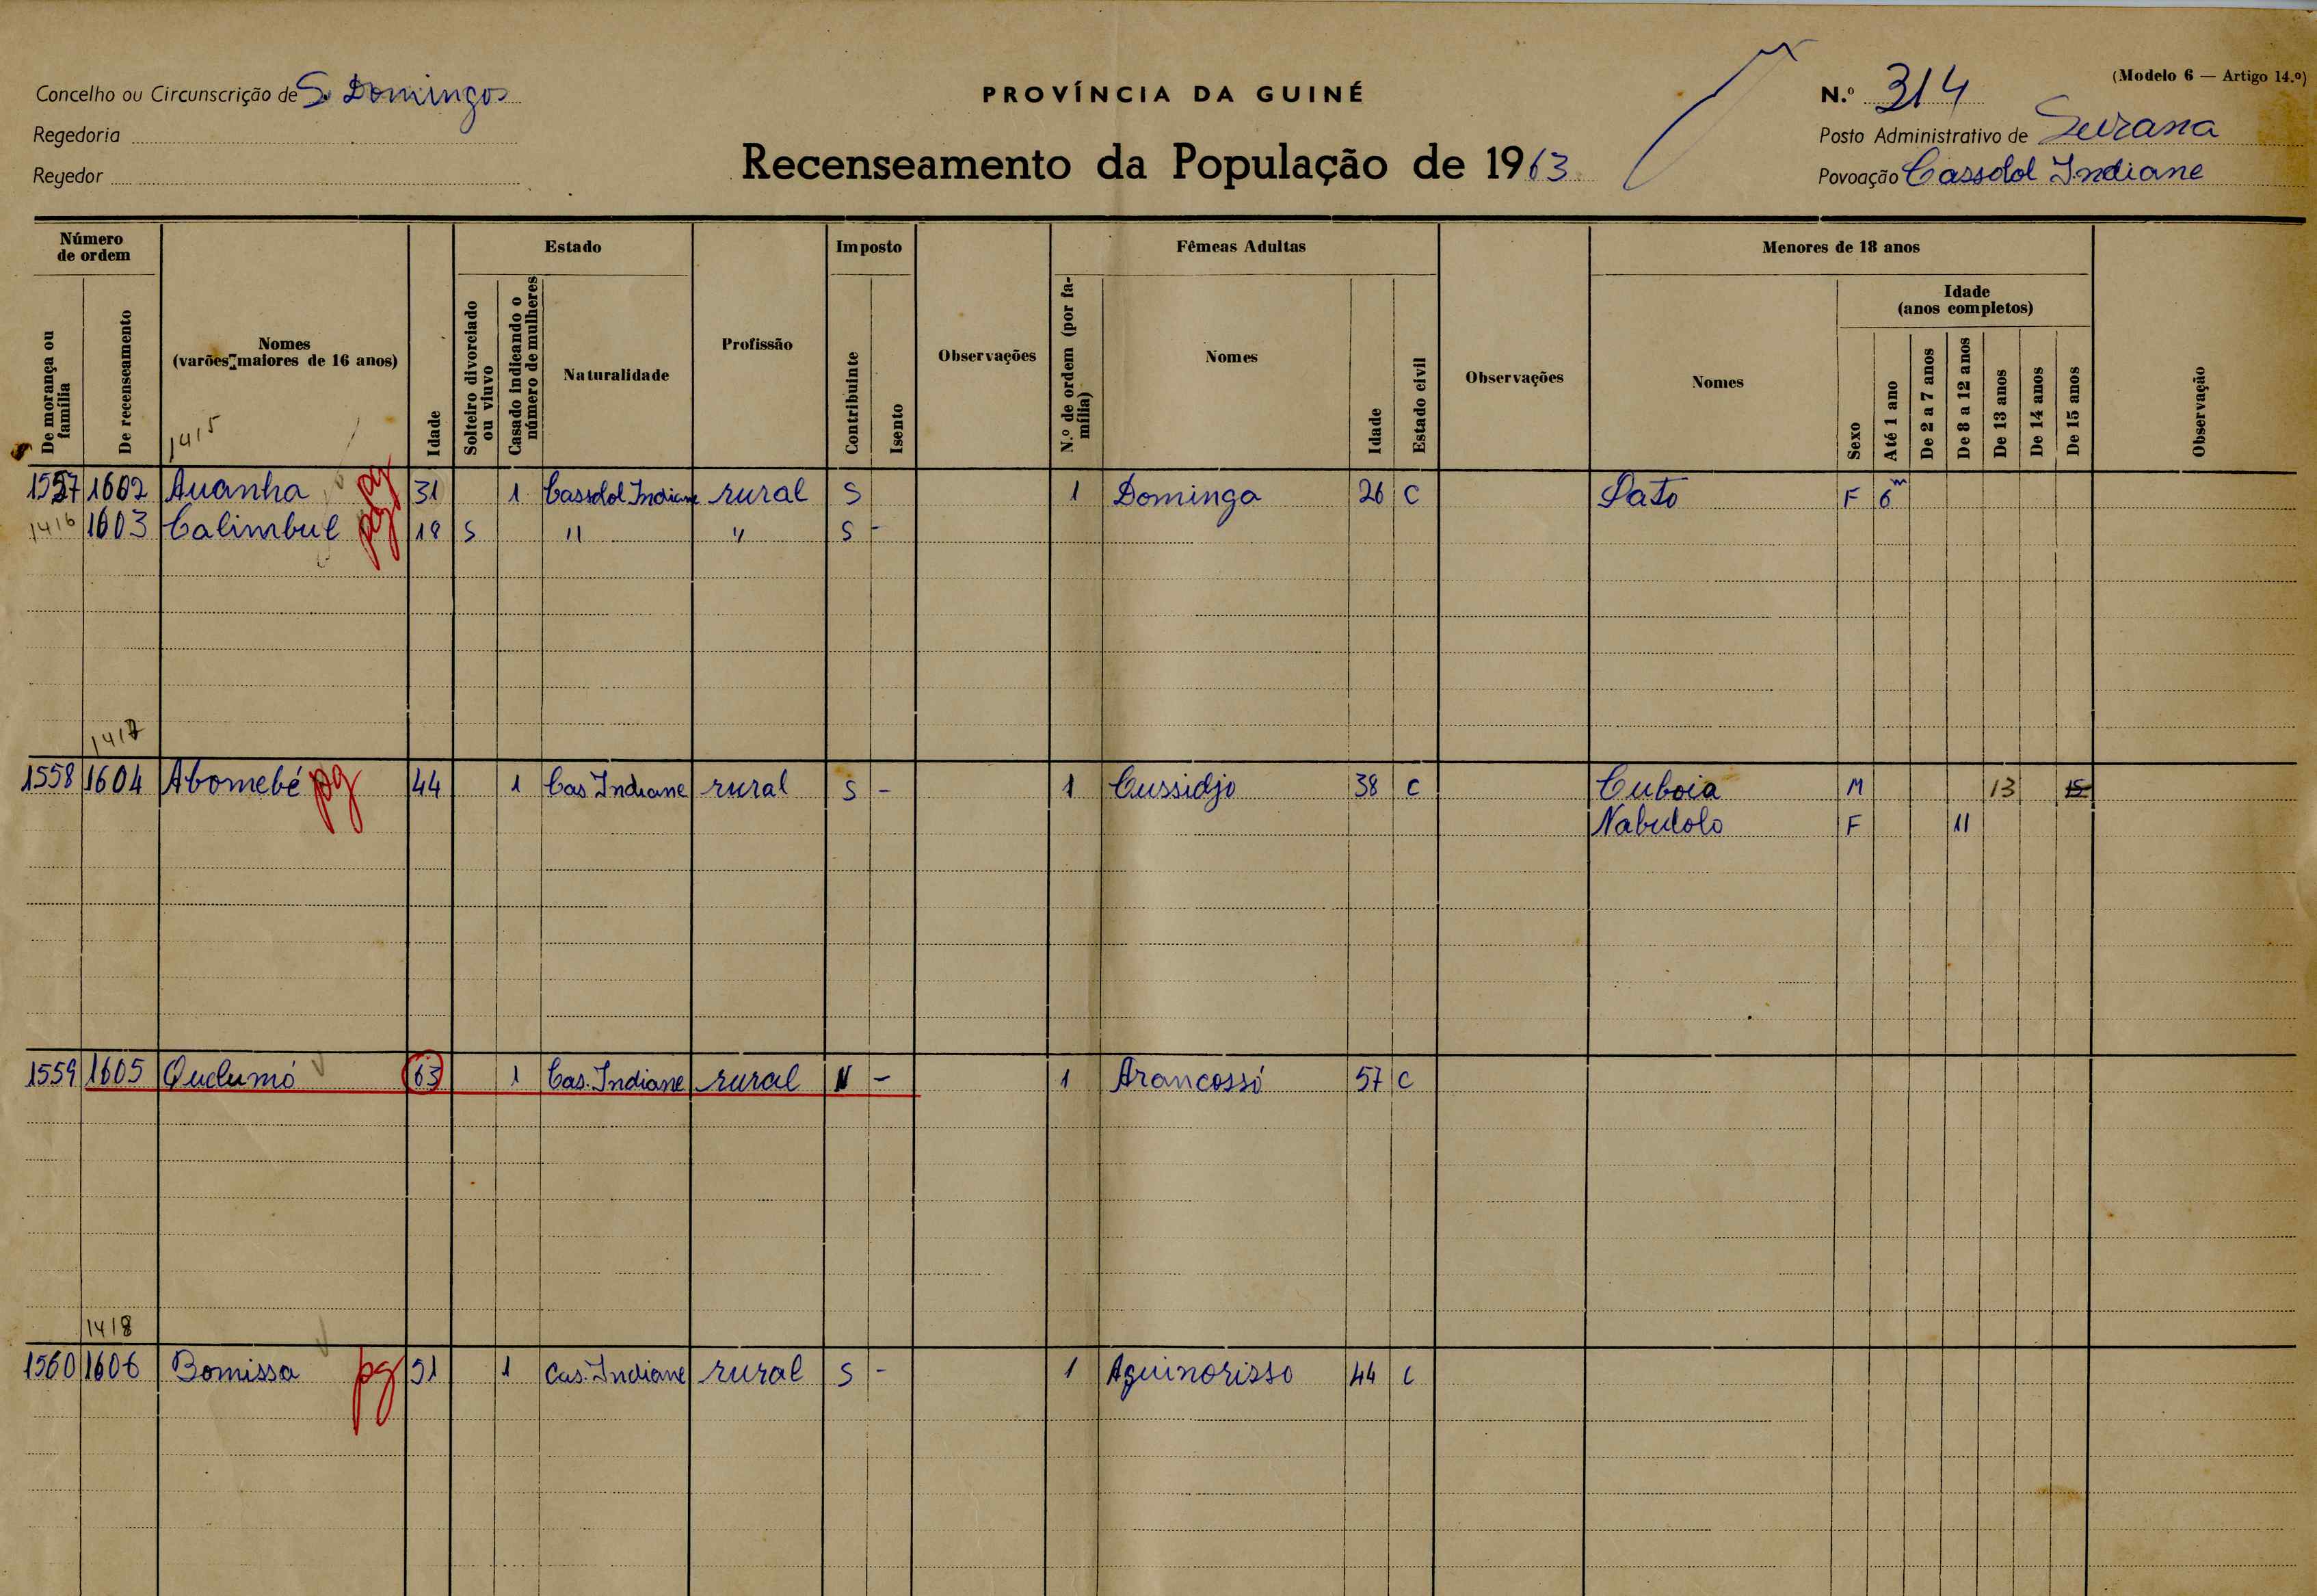 (Modelo 6 — Artigo 14.º)
Concelho ou Circunscrição de S. Domingos
PROVÍNCIA DA GUINÉ
N.º 314
Regedoria
Posto Administrativo de Suzana
Regedor
Recenseamento da População de 1963
Povoação Cassolol Indiane
Número de ordem
Estado
Imposto
Fêmeas Adultas
Menores de 18 anos
De morança ou família
De recenseamento
Nomes (varões maiores de 16 anos)
Idade
Solteiro divorciado ou viuvo
Casado indicando o número de mulheres
Naturalidade
Profissão
Contribuinte
Isento
Observações
N.º de ordem (por família)
Nomes
Idade
Estado civil
Observações
Nomes
Sexo
Idade (anos completos)
Até 1 ano
De 2 a 7 anos
De 8 a 12 anos
De 13 anos
De 14 anos
De 15 anos
Observação
1415
1557 1602 Auanha pg 31 1 Cassolol Indiane rural S 1 Dominga 26 C Sato F 6m
1416 1603 Calimbul pg 18 S " " S -
1417
1558 1604 Abomebé pg 44 1 Cas. Indiane rural S - 1 Cussidjo 38 C Cuboia M 13 15
Nabulolo F 11
1559 1605 Quelumó 63 1 Cas. Indiane rural N - 1 Arancossó 57 C
1418
1560 1606 Bomissa pg 51 1 Cas. Indiane rural S - 1 Aguinorisso 44 C